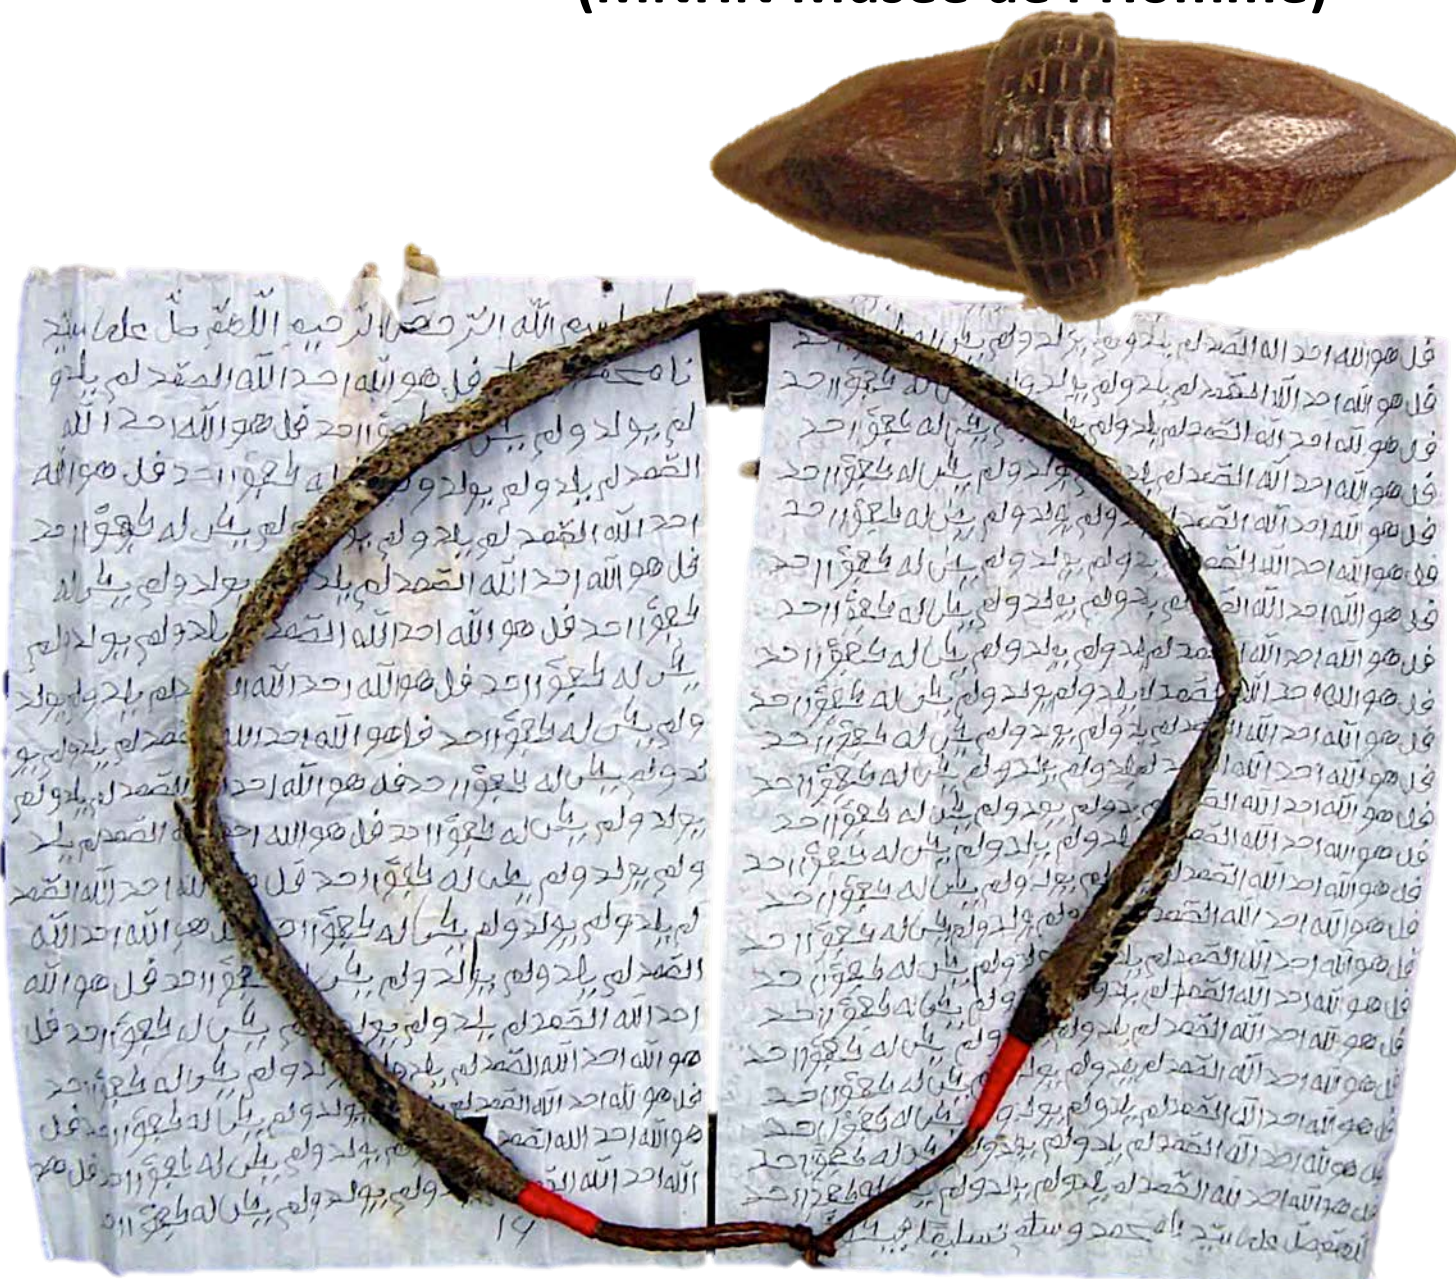 (MNHN-Musée de l'homme)
بسم الله الرحمن الرحيم اللهم صل على سيد
نا محمد قل هو الله احد الله الصمد لم يلد و
لم يولد ولم يكن كفؤا احد قل هو الله احد الله
الصمد لم يلد ولم يولد و له كفؤا احد قل هو الله
احد الله الصمد لم يلد ولم ولم يكن له كفؤا احد
قل هو الله احد الله الصمد لم يلد يولد ولم يكن له
كفؤا احد قل هو الله احد الله الصمد يلد ولم يولد ولم
يكن له كفؤا احد قل هو الله احد الله لم يلد ولم يولد
ولم يكن له كفؤا احد قل هو الله احد الله الصمد لم يلد ولم يو
لد ولم يكن له كفؤا احد قل هو الله احد الصمد لم يلد ولم
يولد ولم يكن له كفؤا احد قل هو الله الصمد لم يلد
ولم يولد ولم يكن له كفؤا احد قل الله احد الله الصمد
لم يلد ولم يولد ولم يكن له كفؤا احد هو الله احد الله
الصمد لم يلد ولم يولد ولم يكن كفؤا احد قل هو الله
احد الله الصمد لم يلد ولم يولد يكن له كفؤا احد قل
هو الله احد الله الصمد لم يلد يولد ولم يكن له كفؤا احد
قل هو الله احد الله الصمد يولد ولم يكن له كفؤا احد قل
هو الله احد الله الصمد يولد ولم يكن له كفؤا احد قل هو
الله احد الله ولم يولد ولم يكن له كفؤا احد
14
قل هو الله احد الله الصمد لم يلد ولم يولد ولم يكن
قل هو الله احد الله الصمد لم يلد ولم يولد ولم له كفؤا احد
قل هو الله احد الله الصمد لم يلد ولم يولد ولم يكن له كفؤا احد
قل هو الله احد الله الصمد لم يلد ولم يولد ولم يكن له كفؤا احد
قل هو الله احد الله الصمد لم يلد ولم يولد ولم يكن له كفؤا احد
قل هو الله احد الله الصمد يلد ولم يولد ولم يكن له كفؤا احد
قل هو الله احد الله الصمد يلد ولم يولد ولم يكن له كفؤا احد
قل هو الله احد الله الصمد لم يلد ولم يولد ولم يكن له كفؤا احد
قل هو الله احد الله الصمد لم يلد ولم يولد ولم يكن له كفؤا احد
قل هو الله احد الله الصمد لم يلد ولم يولد ولم يكن له كفؤا احد
قل هو الله احد الله الصمد لم يلد ولم يولد ولم يكن له كفؤا احد
قل هو الله احد الله الصمد لم يلد ولم يولد ولم يكن له كفؤا احد
قل هو الله احد الله الصمد يلد ولم يولد ولم يكن له كفؤا احد
قل هو الله احد الله الصمد ولم يولد ولم يكن له كفؤا احد
قل هو الله احد الله الصمد ولم يولد ولم يكن له كفؤا احد
قل هو الله احد الله الصمد لم يلد ولم يكن له كفؤا احد
قل هو الله احد الله الصمد لم يلد ولم يكن له كفؤا احد
قل هو الله احد الله الصمد لم يلد ولم يولد ولم يكن له كفؤا احد
قل هو الله احد الله الصمد لم يلد ولم يولد ولم يكن له كفؤا احد
قل هو الله احد الله الصمد لم يلد ولم يولد ولم يكن له كفؤا احد
قل هو الله احد الله الصمد لم يلد ولم يولد ولم يكن له كفؤا احد
قل هو الله احد الله الصمد لم يلد ولم يولد ولم يكن له كفؤا احد
اللهم صل على سيدنا محمد وسلم تسليما